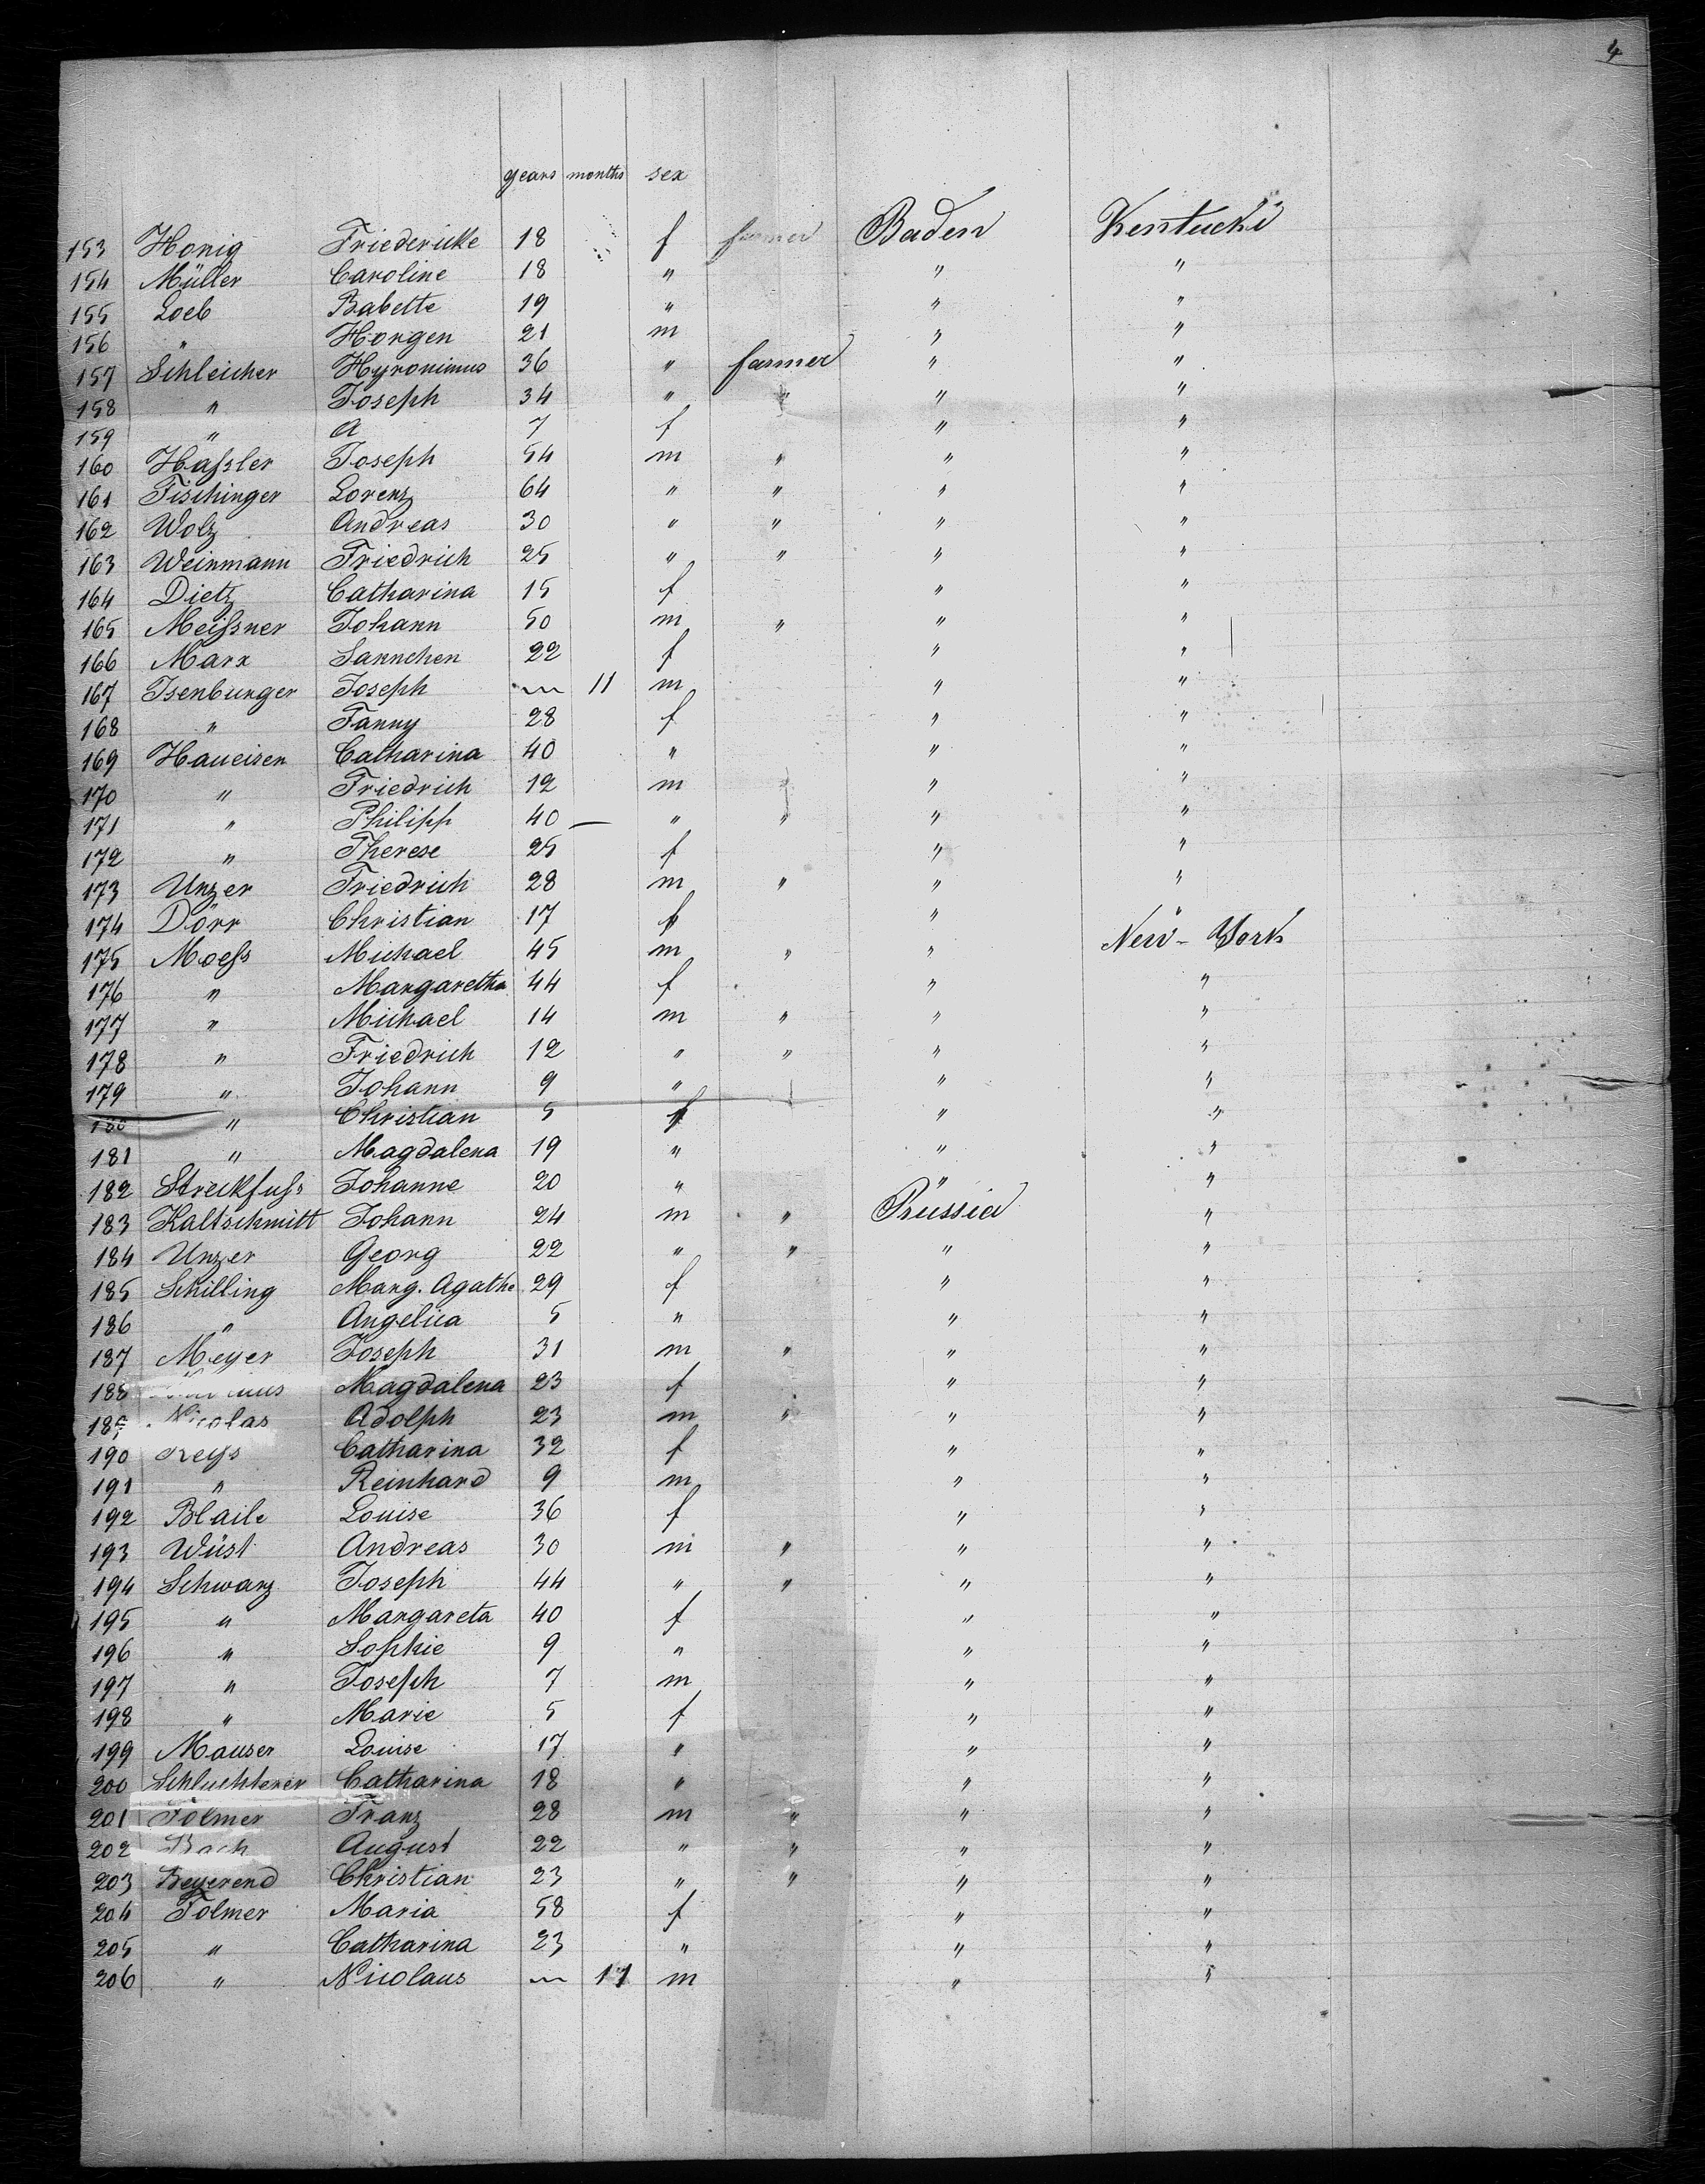 4
years months sex
153 Honig Friedericke 18 f farmer Baden Kentucki
154 Müller Caroline 18 " " "
155 Loeb Babette 19 " " "
156 " Horgen 21 m " "
157 Schleicher Hyronimus 36 " farmer " "
158 " Joseph 34 " " " "
159 " A 7 f " "
160 Haßler Joseph 54 m " " "
161 Fischinger Lorenz 64 " " " "
162 Wolz Andreas 30 " " " "
163 Weinmann Friedrich 25 " " " "
164 Dietz Catharina 15 f " "
165 Meißner Johann 50 m " " "
166 Marx Sannchen 22 f " "
167 Isenburger Joseph — 11 m " "
168 " Fanny 28 f " "
169 Haueisen Catharina 40 " " "
170 " Friedrich 12 m " " "
171 " Philipp 40 — " " " "
172 " Therese 25 f " "
173 Unzer Friedrich 28 m " " "
174 Dörr Christian 17 f " "
175 Moeß Michael 45 m " " New-York
176 " Margaretha 44 f " "
177 " Michael 14 m " " "
178 " Friedrich 12 " " " "
179 " Johann 9 " " "
180 " Christian 5 f " "
181 " Magdalena 19 " " "
182 Streckfuß Johanne 20 " " "
183 Kaltschmitt Johann 24 m " Prussia "
184 Unzer Georg 22 " " " "
185 Schilling Marg. Agathe 29 f " "
186 " Angelica 5 " " "
187 Meyer Joseph 31 m " " "
188 Magdalena 23 f " "
189 Nicolas Adolph 23 m " " "
190 Reyß Catharina 32 f " "
191 " Reinhard 9 m " "
192 Blaile Louise 36 f " "
193 Wüst Andreas 30 m " " "
194 Schwarz Joseph 44 " " " "
195 " Margareta 40 f " "
196 " Sophie 9 " " "
197 " Joseph 7 m " "
198 " Marie 5 f " "
199 Mauser Louise 17 " " "
200 Schluchterer Catharina 18 " " "
201 Folmer Franz 28 m " " "
202 Bach August 22 " " " "
203 Beyerend Christian 23 " " " "
204 Folmer Maria 58 f " "
205 " Catharina 23 " " "
206 " Nicolaus — 11 m " "